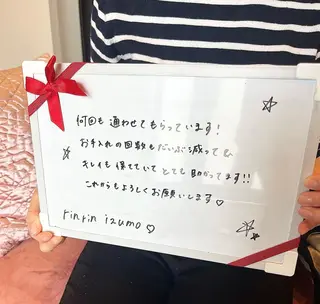 何回も通わせてもらっています！
お手入れの回数もだいぶら減っても
キレイも保てていてとても助かってます!!
これからもよろしくお願いします♡
rinrin izumo ♡